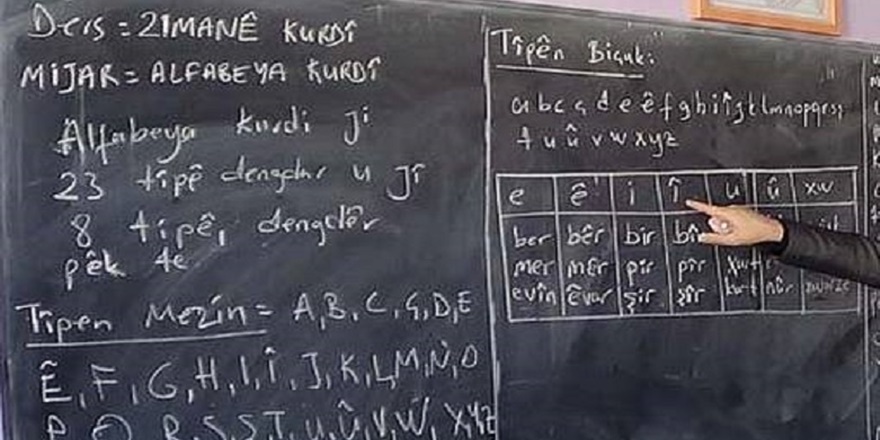 Ders = ZIMANÊ KURDÎ
MIJAR = ALFABEYA KURDÎ
Alfabeya kurdi ji
23 tîpê dengdar u JÎ
8 tipê, dengdêr
pêk te
Tîpen Mezin = A, B, C, Ç, D, E
Ê, F, G, H, I, Î, J, K, L, M, N, O
P, Q, R, S, Ş, T, U, Û, V, W, X, Y, Z
Tîpên Biçuk:
a b c ç d e ê f g h i î j k l m n o p q r s ş
t u û v w x y z
e ê i î u û xw
ber bêr bir bîr
mer mêr pir pîr
evîn êvar şir şîr kurt nûr